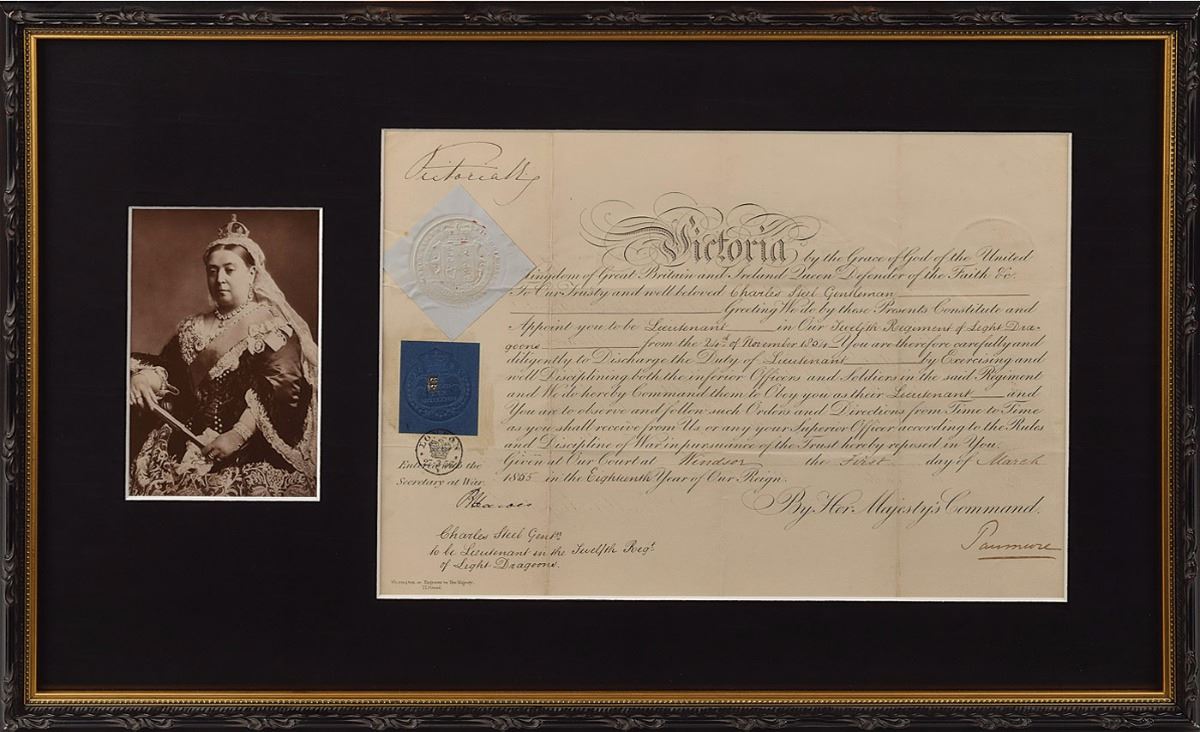 Victoria R
Victoria by the Grace of God of the United
Kingdom of Great Britain and Ireland Queen Defender of the Faith &c.
To Our Trusty and well beloved Charles Steel Gentleman
Greeting We do by these Presents Constitute and
Appoint you to be Lieutenant in Our Twelfth Regiment of Light Dra-
goons from the 24th of November 1854. You are therefore carefully and
diligently to Discharge the Duty of Lieutenant by Exercising and
well Disciplining both the inferior Officers and Soldiers in the said Regiment
and We do hereby Command them to Obey you as their Lieutenant and
You are to observe and follow such Orders and Directions from Time to Time
as you shall receive from Us or any your Superior Officer according to the Rules
and Discipline of War in pursuance of the Trust hereby reposed in You.
Given at Our Court at Windsor the First day of March
1855 in the Eighteenth Year of Our Reign.
By Her Majesty's Command.
Panmure
LONDON
Entered with the
Secretary at War
Charles Steel Gentn
to be Lieutenant in the Twelfth Regt
of Light Dragoons.